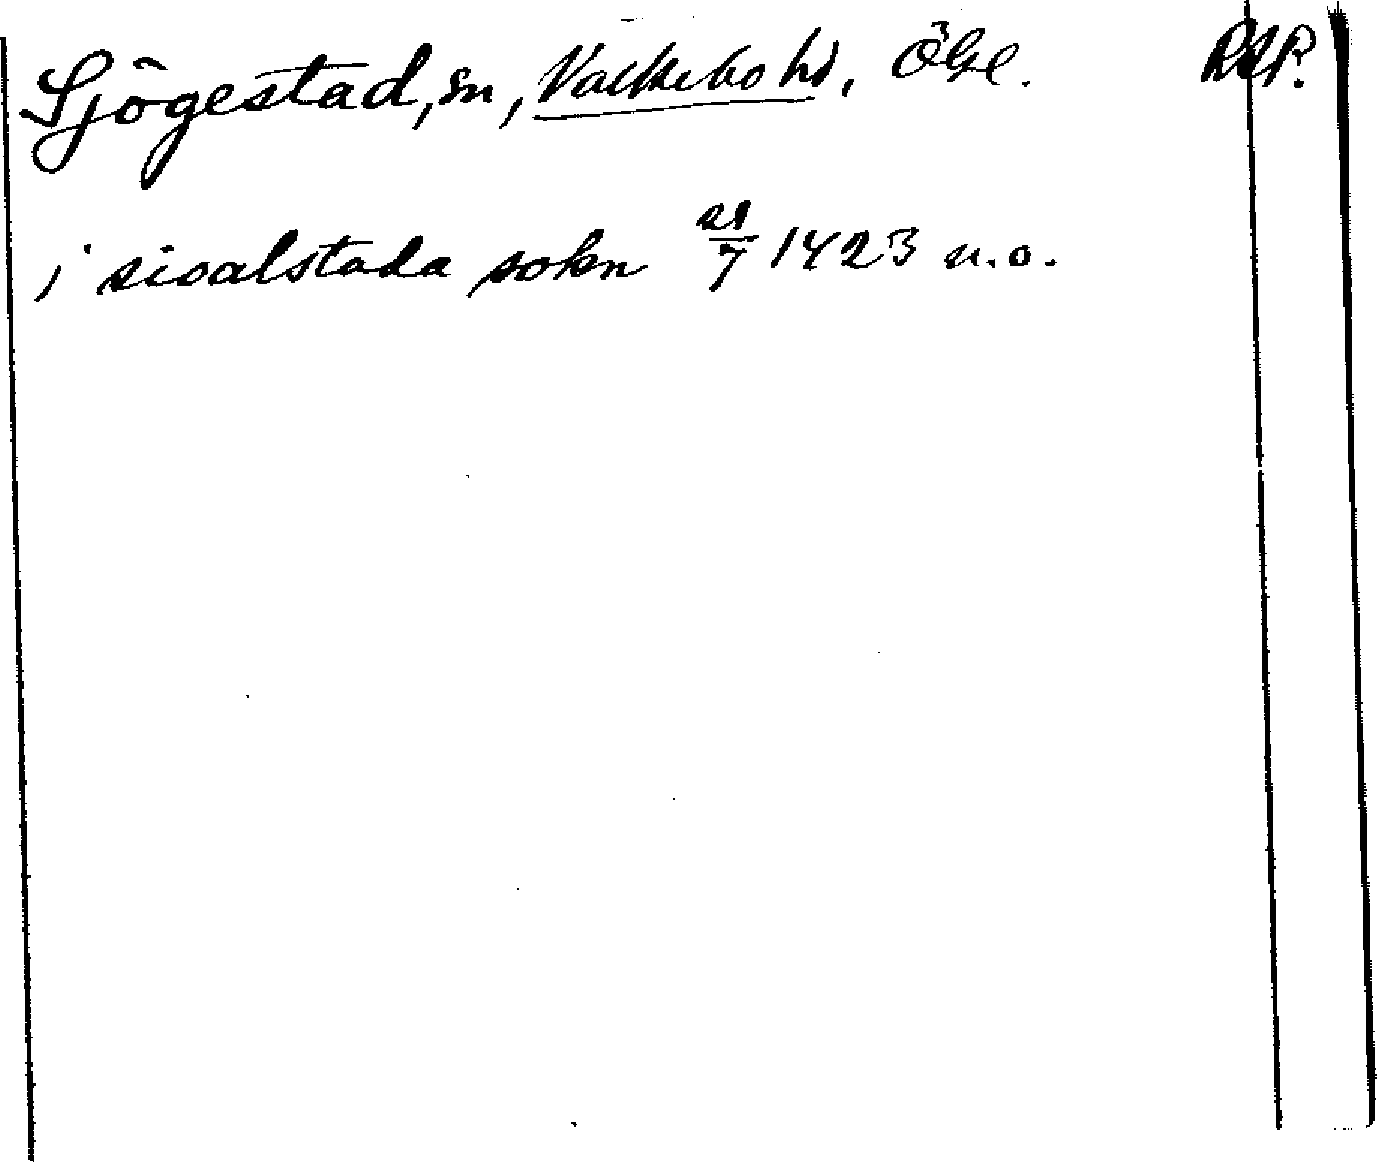 Sjögestad, sn, Valkebo hd, Ögl. RAP.
i sioalstada sokn 21/7 1423 u.o.